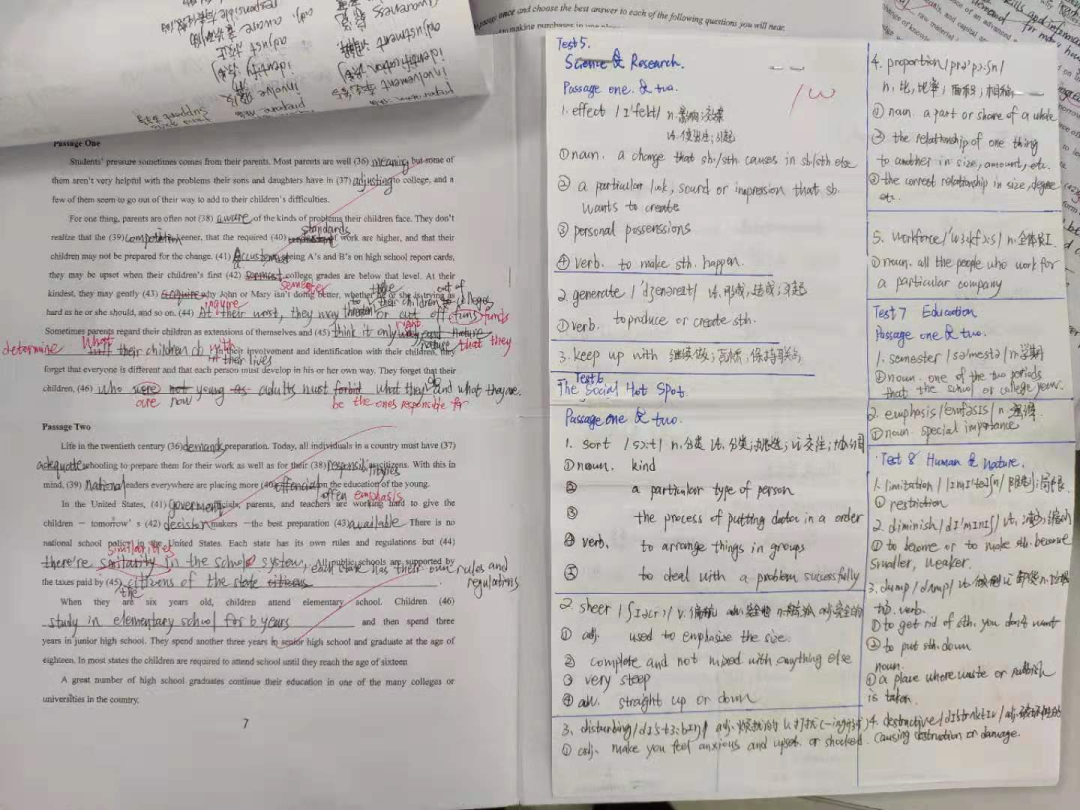 once and choose the best answer to each of the following questions you will near.
Passage One
Students' pressure sometimes comes from their parents. Most parents are well (36) meaning but some of
them aren't very helpful with the problems their sons and daughters have in (37) adjusting to college, and a
few of them seem to go out of their way to add to their children's difficulties.
For one thing, parents are often not (38) aware of the kinds of problems their children face. They don't
realize that the (39) competition keener, that the required (40) standards of work are higher, and that their
children may not be prepared for the change. (41) Accustomed seeing A's and B's on high school report cards,
they may be upset when their children's first (42) semester college grades are below that level. At their
kindest, they may gently (43) inquire why John or Mary isn't doing better, whether he or she is trying as
hard as he or she should, and so on. (44) At their worst, they may threaten to take their children out of colleges or cut off funds
Sometimes parents regard their children as extensions of themselves and (45) think it only right and nature that they
determine What their children do with their lives
In their involvement and identification with their children, they
forget that everyone is different and that each person must develop in his or her own way. They forget that their
children, (46) who are now young adults must be the ones responsible for what they do and what they are.
Passage Two
Life in the twentieth century (36) demands preparation. Today, all individuals in a country must have (37)
adequate schooling to prepare them for their work as well as for their (38) responsibilities citizens. With this in
mind, (39) National leaders everywhere are placing more (40) emphasis on the education of the young.
In the United States, (41) government officials, parents, and teachers are working hard to give the
children – tomorrow's (42) decision makers – the best preparation (43) available There is no
national school policy in the United States. Each state has its own rules and regulations but (44)
there're similarities in the school system, each state has their own rules and regulations
All public schools are supported by
the taxes paid by (45) citizens of the state
When they are six years old, children attend elementary school. Children (46)
study in elementary school for 6 years and then spend three
years in junior high school. They spend another three years in senior high school and graduate at the age of
eighteen. In most states the children are required to attend school until they reach the age of sixteen
A great number of high school graduates continue their education in one of the many colleges or
universities in the country.
7
Test 5.
Science & Research.
Passage one & two.
1. effect /ɪ'fekt/ n. 影响; 效果
vt. 使发生; 引起
① noun. a change that sb/sth causes in sb/sth else
② a particular look, sound or impression that sb.
wants to create
③ personal possenssions
④ verb. to make sth. happen.
2. generate /'dʒenəreɪt/ vt. 形成, 造成; 引起
① verb. to produce or create sth.
3. keep up with 继续做; 保持联系
Test 6
The Social Hot Spot.
Passage one & two.
1. sort /sɔ:t/ n. 分类 vt. 分类
① noun. kind
② a particular type of person
③ the process of putting data in a order
④ verb. to arrange things in groups
⑤ to deal with a problem successfully
2. sheer
① adj. used to emphasize the size.
② complete and not mixed with anything else
③ very steep
④ adv. straight up or down
3. disturbing /dɪ'stɜ:bɪŋ/ adj.
① adj. make you feel anxious and upset or shocked.
4. proportion /prə'pɔ:ʃn/
n. 比, 比率; 面积; 相称
① noun a part or share of a whole
② the relationship of one thing
to another in size, amount, etc.
③ the correct relationship in size, degree
etc.
5. workforce /'wɜ:kfɔ:s/ n. 全体员工
① noun. all the people who work for
a particular company
Test 7 Education
Passage one & two.
1. semester /sə'mestə/ n. 学期
① noun. one of the two periods
that the school or college year.
2. emphasis /'emfəsɪs/ n. 强调
① noun special importance
Test 8 Human & Nature.
1. limitation /lɪmɪ'teɪʃn/
① restriction
2. diminish /dɪ'mɪnɪʃ/ vt.
① to become or to make sth. become
smaller, weaker.
3. dump /dʌmp/ vt.
verb.
① to get rid of sth. you don't want
② to put sth. down
noun.
① a place where waste or rubbish
is taken
4. destructive /dɪ'strʌktɪv/ adj.
causing destruction or damage.